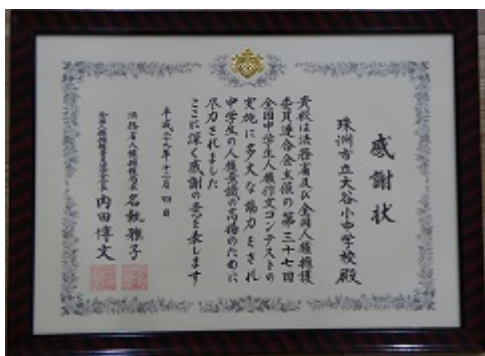 感謝状
珠洲市立大谷小中学校殿
貴校は法務省及び全国人権擁護
委員連合会主催の第三十七回
全国中学生人権作文コンテストの
実施に多大な協力をされ
中学生の人権意識の高揚のために
尽力されました
ここに深く感謝の意を表します
平成二十九年十二月四日
法務省人権擁護局長 名執雅子
全国人権擁護委員連合会長 内田博文